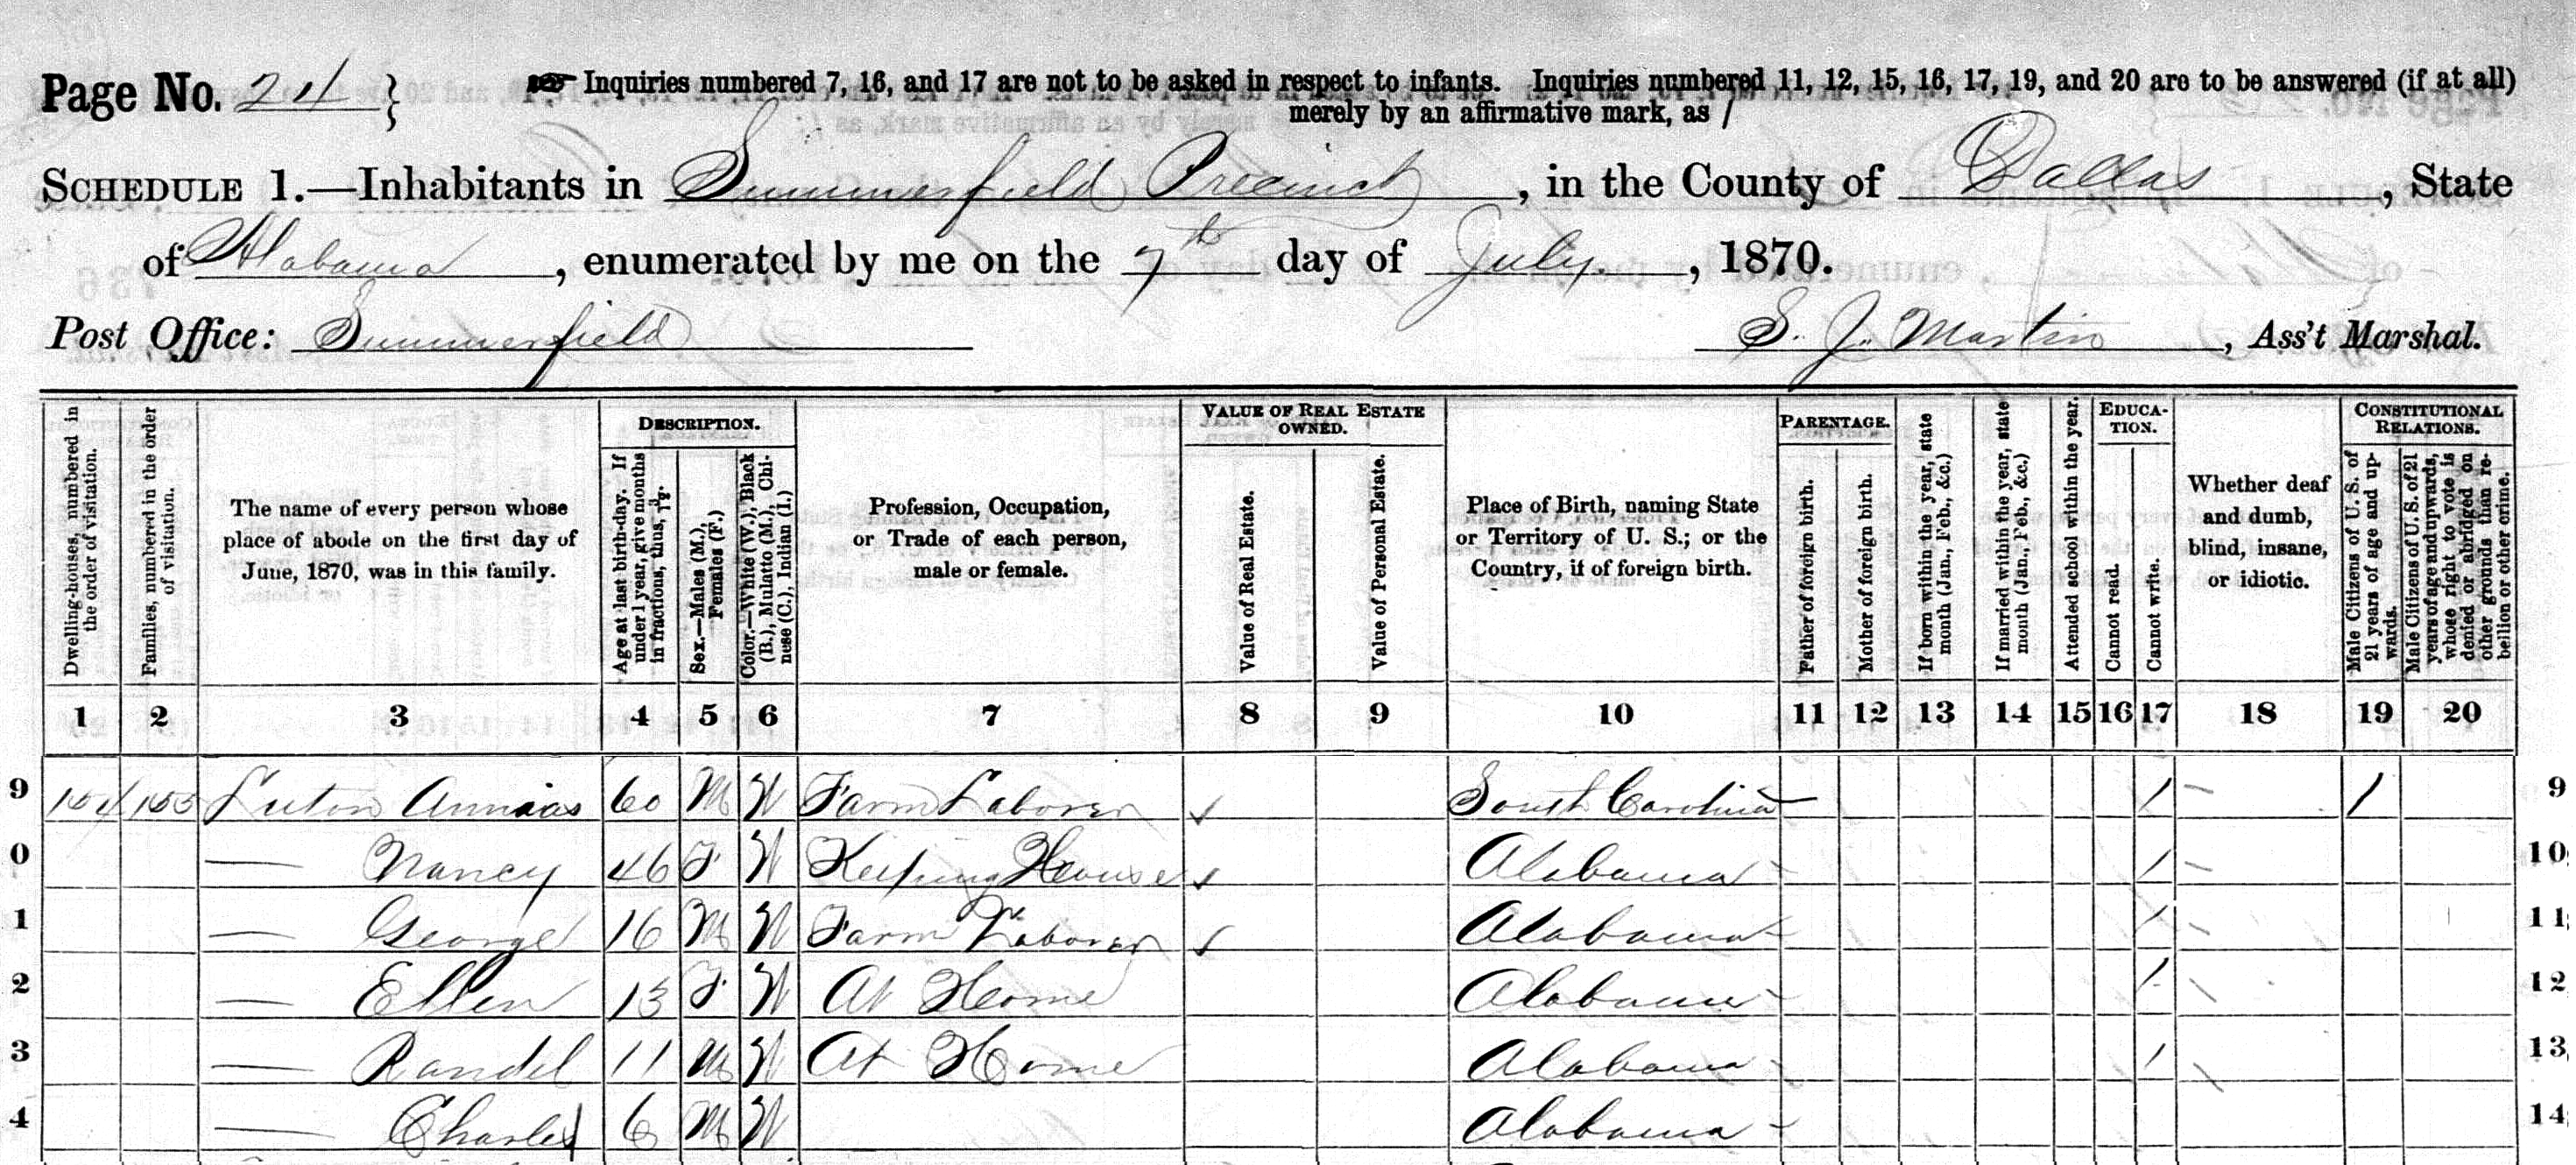 Page No. 24 } Inquiries numbered 7, 16, and 17 are not to be asked in respect to infants. Inquiries numbered 11, 12, 15, 16, 17, 19, and 20 are to be answered (if at all)
merely by an affirmative mark, as /
SCHEDULE 1.—Inhabitants in Summerfield Precinct, in the County of Dallas, State
of Alabama, enumerated by me on the 7th day of July., 1870.
Post Office: Summerfield S. J. Martin, Ass't Marshal.
Dwelling-houses, numbered in the order of visitation.
Families, numbered in the order of visitation.
The name of every person whose place of abode on the first day of June, 1870, was in this family.
DESCRIPTION.
Age at last birth-day. If under 1 year, give months in fractions, thus, 3/12.
Sex.—Males (M.), Females (F.)
Color.—White (W.), Black (B.), Mulatto (M.), Chinese (C.), Indian (I.)
Profession, Occupation, or Trade of each person, male or female.
VALUE OF REAL ESTATE OWNED.
Value of Real Estate.
Value of Personal Estate.
Place of Birth, naming State or Territory of U. S.; or the Country, if of foreign birth.
PARENTAGE.
Father of foreign birth.
Mother of foreign birth.
If born within the year, state month (Jan., Feb., &c.)
If married within the year, state month (Jan., Feb., &c.)
Attended school within the year.
EDUCATION.
Cannot read.
Cannot write.
Whether deaf and dumb, blind, insane, or idiotic.
CONSTITUTIONAL RELATIONS.
Male Citizens of U. S. of 21 years of age and upwards.
Male Citizens of U. S. of 21 years of age and upwards, whose right to vote is denied or abridged on other grounds than rebellion or other crime.
1 2 3 4 5 6 7 8 9 10 11 12 13 14 15 16 17 18 19 20
9 154 155 Annias 60 M W Farm Laborer ✓ South Carolina / / 9
0 — Nancy 46 F W Keeping House ✓ Alabama / 10
1 — George 16 M W Farm Laborer ✓ Alabama / 11
2 — Ellen 13 F W At Home Alabama / 12
3 — Randel 11 M W At Home Alabama / 13
4 — Charles 6 M W Alabama 14